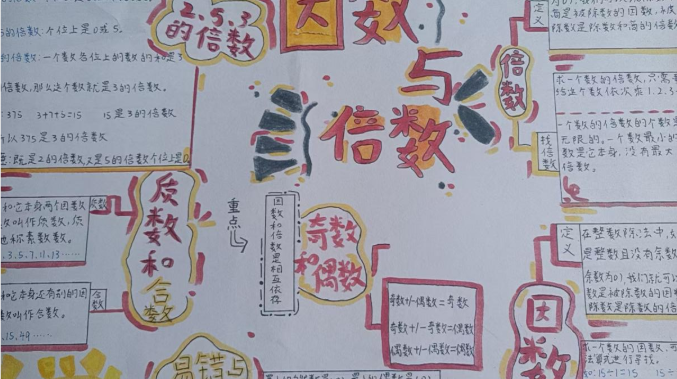 2.5.3
的倍数
因数
与
倍数
的倍数:个位上是0或5。
的倍数:一个数各位上的数的和是3
倍数,那么这个数就是3的倍数
375 3+7+5=15 15是3的倍数
以375是3的倍数
既是2的倍数又是5的倍数个位上是0
定义
海是被除数的因数,被
除数是除数和商的倍数
倍数
找倍数
求一个数的倍数,只需要
给这个数依次乘1.2.3
一个数的倍数的个数是
无限的,一个数最小的
数是它本身,没有最大
倍数。
质数和合数
和它本身两个因数
数叫作质数,质
也称素数。
.3.5.7.11.13……
质数
和它本身还有别的因
数叫作合数。
.15.49……
合数
重点
因数和倍数是相互依存
奇数
和偶数
奇数+/-偶数=奇数
奇数+/-奇数=偶数
偶数+/-偶数=偶数
因数
定义
在整数除法中,
是整数且没有余数
余数为0),我们就可以
数是被除数的因
除数是除数的倍
求一个数的因数,可
法算式进行寻找。
如:15÷1=15 15÷
易错与